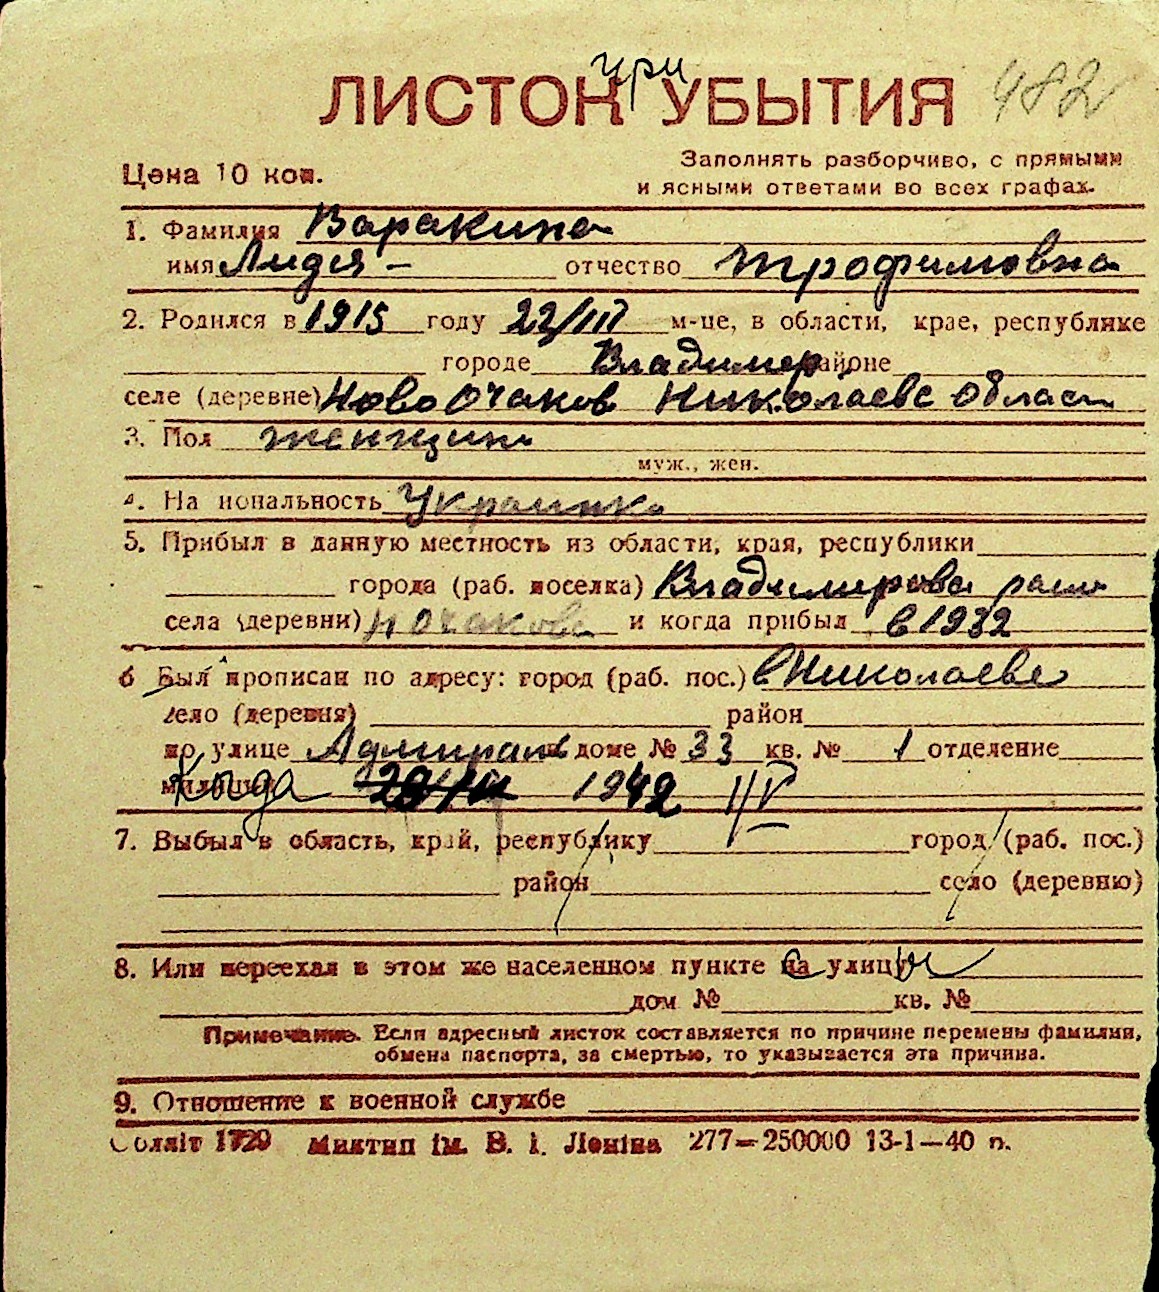 при
ЛИСТОК УБЫТИЯ 482
Цена 10 коп.
Заполнять разборчиво, с прямыми
и ясными ответами во всех графах.
1. Фамилия Варакина
имя Лидея - отчество Трофимовна
2. Родился в 1915 году 22/III м-це, в области, крае, республике
городе Владимер районе
селе (деревне) Ново Очаков Николаевс област
3. Пол женщина
муж., жен.
4. На иональность Украинка
5. Прибыл в данную местность из области, края, республики
города (раб. поселка) Владимирова район
села (деревни) Н Очаково и когда прибыл в 1932
6 Был прописан по адресу: город (раб. пос.) в Николаеве
село (деревня) район
по улице Адмирал в доме № 33 кв. № 1 отделение
милиции Когда 1942 II/V
7. Выбыл в область, край, республику город (раб. пос.)
район село (деревню)
8. Или переехал в этом же населенном пункте на улицу
дом № кв. №
Примечание. Если адресный листок составляется по причине перемены фамилии,
обмена паспорта, за смертью, то указывается эта причина.
9. Отношение к военной службе
Обллiт 1720 Миктип iм. В. I. Ленiна 277—250000 13-1—40 п.